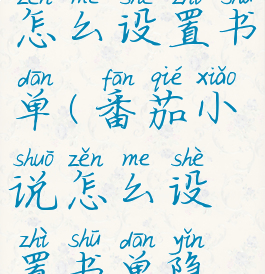 zěn me shè zhì shū
怎么设置书
dān fān qié xiǎo
单(番茄小
shuō zěn me shè
说怎么设
zhì shū dān yǐn
置书单隐